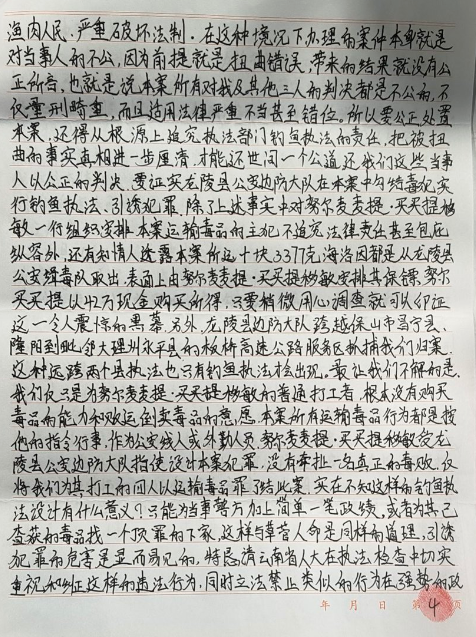 渔肉人民、严重破坏法制. 在这种情况下办理的案件本身就是
对当事人的不公, 因为前提就是扭曲错误, 带来的结果就没有公
正所言, 也就是说本案所有对我及其他三人的判决都是不公的, 不
仅重刑畸重, 而且适用法律严重不当甚至错位. 所以要公正处置
本案, 还得从根源上追究执法部门钓鱼执法的责任, 把被扭
曲的事实真相进一步厘清, 才能还世间一个公道, 还我们这些当事
人以公正的判决. 要证实龙陵县公安边防大队在本案中勾结毒犯实
行钓鱼执法、引诱犯罪, 除了上述事实中对努尔麦麦提·买买提
敏一行组织安排本案运输毒品的主犯不追究法律责任甚至包庇
纵容外, 还有知情人透露本案所运十块3377克海洛因都是从龙陵县
公安缉毒队取出, 表面上由努尔麦麦提·买买提敏安排其保镖努尔
买买提以42万现金购买所得, 只要稍微用心调查就可以印证
这一令人震惊的黑幕. 另外, 龙陵县边防大队跨越保山市昌宁县、
隆阳到毗邻大理州永平县的板桥高速公路服务区抓捕我们归案,
这种远跨两个县执法也只有钓鱼执法才会出现. 最让我们不解的是,
我们仅只是为努尔麦麦提·买买提敏的普通打工者, 根本没有购买
毒品的能力和贩运倒卖毒品的意愿, 本案所有运输毒品行为都是按
他的指令行事, 作为公安线人或外勤人员, 努尔麦麦提·买买提敏受龙
陵县公安边防大队指使设计本案犯罪, 没有牵扯一名真正的毒贩, 仅
将我们为其打工的四人以运输毒品罪了结此案, 实在不知这样的钓鱼执
法设计有什么意义? 只能为当事警方加上简单一笔政绩, 或者为其已
查获的毒品找一个顶罪的下家, 这样与草菅人命是同样的道理, 引诱
犯罪的危害是显而易见的, 特恳请云南省人大在执法检查中切实
重视和纠正这样的违法行为, 同时立法禁止类似的行为在强势的政
年 月 日 第 4 页